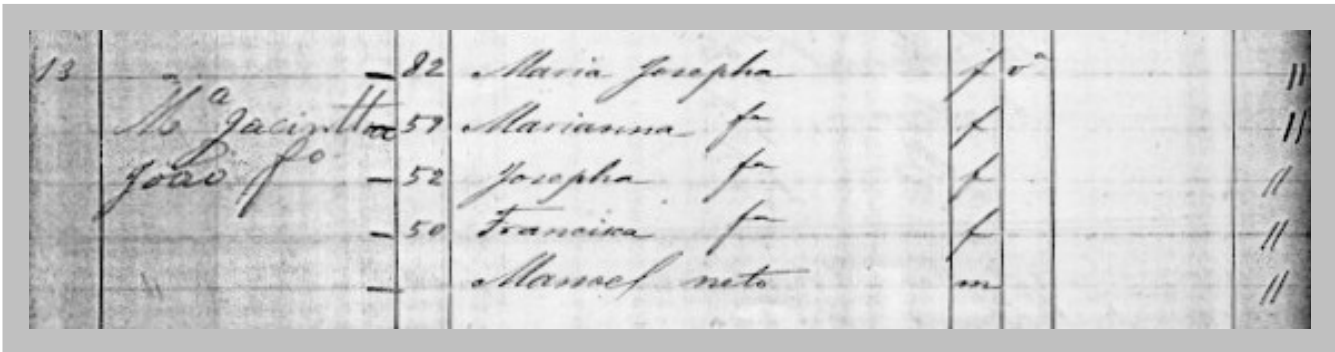 13 - 82 Maria Josepha f vª "
Mª Jacintha 57 Marianna fª f "
João fº - 52 Josepha fª f "
- 50 Francisca fª f "
" - Manoel neto m "